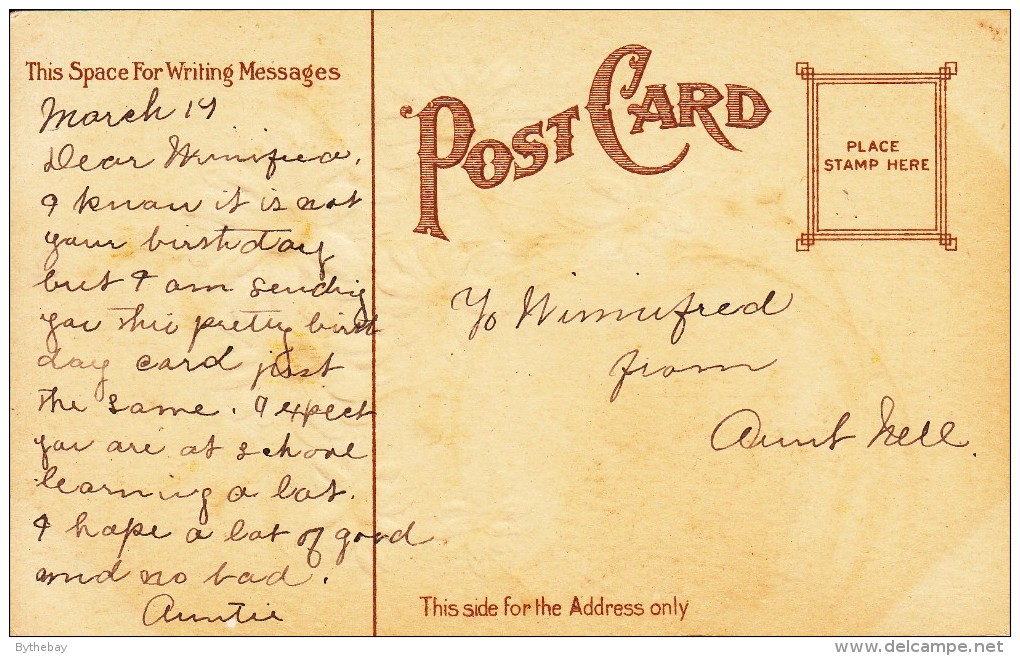 This Space For Writing Messages
March 17
Dear Winifred,
I know it is not
your birthday
but I am sending
you this pretty birth
day card just
the same. I expect
you are at school
learning a lot.
I hope a lot of good
and no bad.
Auntie
POST CARD
PLACE
STAMP HERE
To Winnifred
from
Aunt Nell.
This side for the Address only
Bythebay
www.delcampe.net